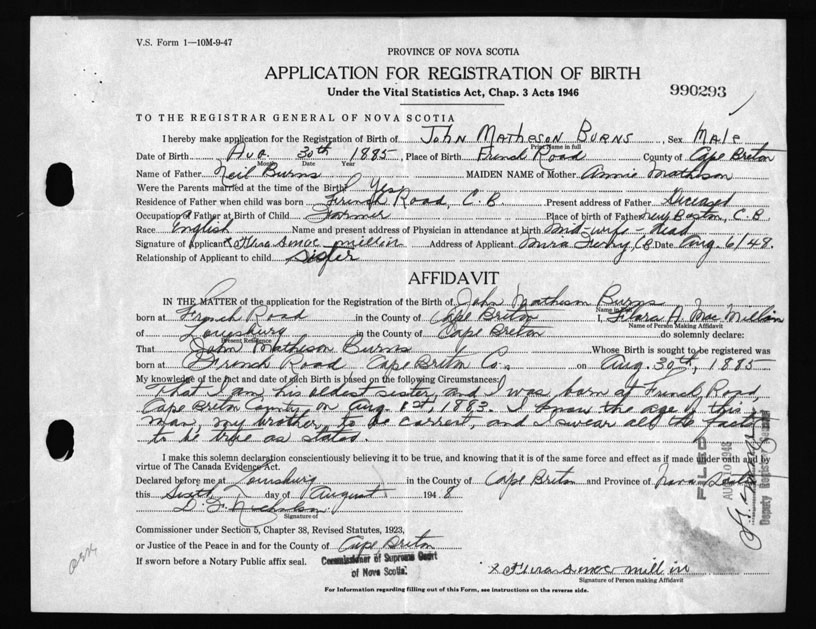 V.S. Form 1—10M-9-47
PROVINCE OF NOVA SCOTIA
APPLICATION FOR REGISTRATION OF BIRTH
Under the Vital Statistics Act, Chap. 3 Acts 1946
990293
TO THE REGISTRAR GENERAL OF NOVA SCOTIA
I hereby make application for the Registration of Birth of John Matheson Burns, Sex Male
Print Name in full
Date of Birth Aug. 30th 1885, Place of Birth French Road County of Cape Breton
Month Date Year
Name of Father Neil Burns MAIDEN NAME of Mother Annie Mathison
Were the Parents married at the time of the Birth? Yes
Residence of Father when child was born French Road, C.B. Present address of Father Deceased
Occupation of Father at Birth of Child Farmer Place of birth of Father New Boston, C.B.
Race English Name and present address of Physician in attendance at birth Mid-wife - dead
Signature of Applicant x Flora A mac millin Address of Applicant Mira Ferry, CB Date Aug. 6/48.
Relationship of Applicant to child Sister
AFFIDAVIT
IN THE MATTER of the application for the Registration of the Birth of John Matheson Burns
Name in Full
born at French Road in the County of Cape Breton I, Flora A. Mac Millan
Name of Person Making Affidavit
of Louisburg in the County of Cape Breton do solemnly declare:
Present Residence
That John Matheson Burns Whose Birth is sought to be registered was
born at French Road Cape Breton Co. on Aug. 30th, 1885
My knowledge of the fact and date of such Birth is based on the following Circumstances:
That I am his oldest sister, and I was born at French Road,
Cape Breton County, on Aug. 1st, 1883. I know the age of this
man, my brother, to be correct, and I swear all the facts
to be true as stated.
I make this solemn declaration conscientiously believing it to be true, and knowing that it is of the same force and effect as if made under oath and by
virtue of The Canada Evidence Act.
Declared before me at Louisburg in the County of Cape Breton and Province of Nova Scotia
this Sixth day of August 1948
D. F. Nicholson
Signature of
Commissioner under Section 5, Chapter 38, Revised Statutes, 1923,
or Justice of the Peace in and for the County of Cape Breton
If sworn before a Notary Public affix seal.
Commissioner of Supreme Court
of Nova Scotia.
x Flora A mac mill in
Signature of Person making Affidavit
For Information regarding filling out of this Form, see instructions on the reverse side.
FILED
AUG 10 1948
Deputy Registrar General